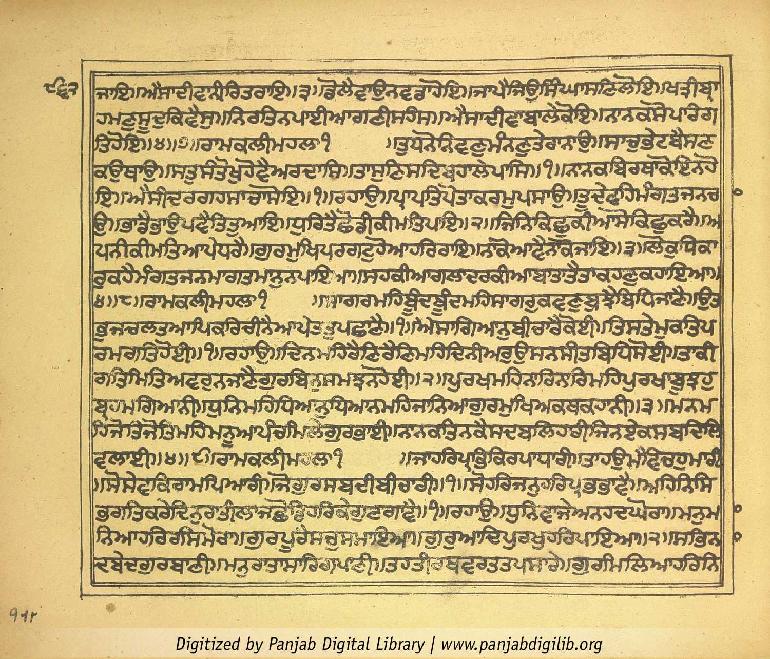 ੮੬੩
ਜਾਇ॥ਐਸਾਦੀਵਾਨੀਰਿਤਰਾਇ॥੩॥ਡੋਲੈਵਾਉਨਵਡਾਹੋਇ॥ਜਾਪੈਜਿਉਸਿੰਘਾਸਣਿਲੋਇ॥ਖਤ੍ਰੀਬ੍ਰਾ
ਹਮਣੁਸੂਦੁਕਿਵੈਸੁ॥ਨਿਰਤਿਨਪਾਈਆਗਣੀਸਹੰਸ॥ਐਸਾਦੀਵਾਬਾਲੇਕੋਇ॥ਨਾਨਕਸੋਪਾਰੰਗ
ਤਿਹੋਇ॥੪॥੭॥ਰਾਮਕਲੀਮਹਲਾ੧ ॥ਤੁਧਨੋਨਿਵਣੁਮੰਨਣੁਤੇਰਾਨਾਉ॥ਸਾਚੁਭੇਟਬੈਸਣ
ਕਉਥਾਉ॥ਸਤੁਸੰਤੋਖੁਹੋਵੈਅਰਦਾਸਿ॥ਤਾਸੁਣਿਸਦਿਬਹਾਲੇਪਾਸਿ॥੧॥ਨਾਨਕਬਿਰਥਾਕੋਇਨਹੋ
ਇ॥ਐਸੀਦਰਗਹਸਾਚਾਸੋਇ॥੧॥ਰਹਾਉ॥ਪ੍ਰਾਪਤਿਪੋਤਾਕਰਮੁਪਸਾਉ॥ਤੂਦੇਵਹਿਮੰਗਤਜਨਚਾ
ਉ॥ਭਾਡੈਭਾਉਪਵੈਤਿਤੁਆਇ॥ਧੁਰਿਤੈਛੋਡੀਕੀਮਤਿਪਾਇ॥੨॥ਜਿਨਿਕਿਛੁਕੀਆਸੋਕਿਛੁਕਰੈ॥ਅ
ਪਨੀਕੀਮਤਿਆਪੇਧਰੈ॥ਗੁਰਮੁਖਿਪਰਗਟੁਹੋਆਹਰਿਰਾਇ॥ਨਾਕੋਆਵੈਨਾਕੋਜਾਇ॥੩॥ਲੋਕੁਧਿਕਾ
ਰੁਕਹੈਮੰਗਤਜਨਮਾਗਤਮਾਨੁਨਪਾਇਆ॥ਸਹਕੀਆਗਲਾਦਰਕੀਆਬਾਤਾਤੈਤਾਕਹਣੁਕਹਾਇਆ॥
੪॥੮॥ਰਾਮਕਲੀਮਹਲਾ੧ ॥ਸਾਗਰਮਹਿਬੂੰਦਬੂੰਦਮਹਿਸਾਗਰੁਕਵਣੁਬੁਝੈਬਿਧਿਜਾਣੈ॥ਉਤ
ਭੁਜਚਲਤਆਪਿਕਰਿਚੀਨੈਆਪੇਤਤੁਪਛਾਣੈ॥੧॥ਐਸਾਗਿਆਨੁਬੀਚਾਰੈਕੋਈ॥ਤਿਸਤੇਮੁਕਤਿਪ
ਰਮਗਤਿਹੋਈ॥੧॥ਰਹਾਉ॥ਦਿਨਮਹਿਰੈਣਿਰੈਣਿਮਹਿਦਿਨੀਅਰੁਉਸਨਸੀਤਬਿਧਿਸੋਈ॥ਤਾਕੀ
ਗਤਿਮਿਤਿਅਵਰੁਨਜਾਣੈਗੁਰਬਿਨੁਸਮਝਨਹੋਈ॥੨॥ਪੁਰਖਮਹਿਨਾਰਿਨਾਰਿਮਹਿਪੁਰਖਾਬੂਝਹੁ
ਬ੍ਰਹਮਗਿਆਨੀ॥ਧੁਨਿਮਹਿਧਿਆਨੁਧਿਆਨਮਹਿਜਾਨਿਆਗੁਰਮੁਖਿਅਕਥਕਹਾਨੀ॥੩॥ਮਨਮ
ਹਿਜੋਤਿਜੋਤਿਮਹਿਮਨੂਆਪੰਚਮਿਲੇਗੁਰਭਾਈ॥ਨਾਨਕਤਿਨਕੈਸਦਬਲਿਹਾਰੀਜਿਨਏਕਸਬਦਿਲਿ
ਵਲਾਈ॥੪॥੯॥ਰਾਮਕਲੀਮਹਲਾ੧ ॥ਜਾਹਰਿਪ੍ਰਭਿਕਿਰਪਾਧਾਰੀ॥ਤਾਹਉਮੈਵਿਚਹੁਮਾਰੀ
॥ਸੋਸੇਵਕਿਰਾਮਪਿਆਰੀ॥ਜੋਗੁਰਸਬਦੀਬੀਚਾਰੀ॥੧॥ਸੋਹਰਿਜਨੁਹਰਿਪ੍ਰਭਭਾਵੈ॥ਅਹਿਨਿਸਿ
ਭਗਤਿਕਰੇਦਿਨੁਰਾਤੀਲਾਜਛੋਡਿਹਰਿਕੇਗੁਣਗਾਵੈ॥੧॥ਰਹਾਉ॥ਧੁਨਿਵਾਜੇਅਨਹਦਘੋਰਾ॥ਮਨੁਮਾ
ਨਿਆਹਰਿਰਸਿਮੋਰਾ॥ਗੁਰਪੂਰੈਸਚੁਸਮਾਇਆ॥ਗੁਰੁਆਦਿਪੁਰਖੁਹਰਿਪਾਇਆ॥੨॥ਸਭਿਨਾ
ਦਬੇਦਗੁਰਬਾਣੀ॥ਮਨੁਰਾਤਾਸਾਰਿਗਪਾਣੀ॥ਤਹਤੀਰਥਵਰਤਤਪਸਾਰੇ॥ਗੁਰਮਿਲਿਆਹਰਿਨਿ
Digitized by Panjab Digital Library | www.panjabdigilib.org